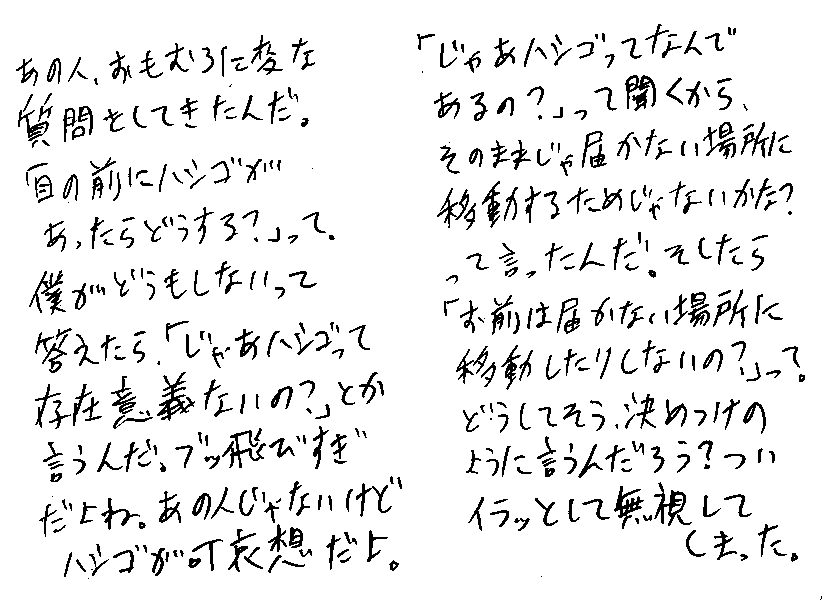 あの人、おもむろに変な
質問をしてきたんだ。
「目の前にハシゴが
あったらどうする?」って。
僕がどうもしないって
答えたら、「じゃあハシゴって
存在意義ないの?」とか
言うんだ。ブッ飛びすぎ
だよね。あの人じゃないけど
ハシゴが可哀想だよ。
「じゃあハシゴってなんで
あるの?」って聞くから、
そのままじゃ届かない場所に
移動するためじゃないかな?
って言ったんだ。そしたら
「お前は届かない場所に
移動したりしないの?」って。
どうしてそう、決めつけの
ように言うんだろう?つい
イラッとして無視して
しまった。